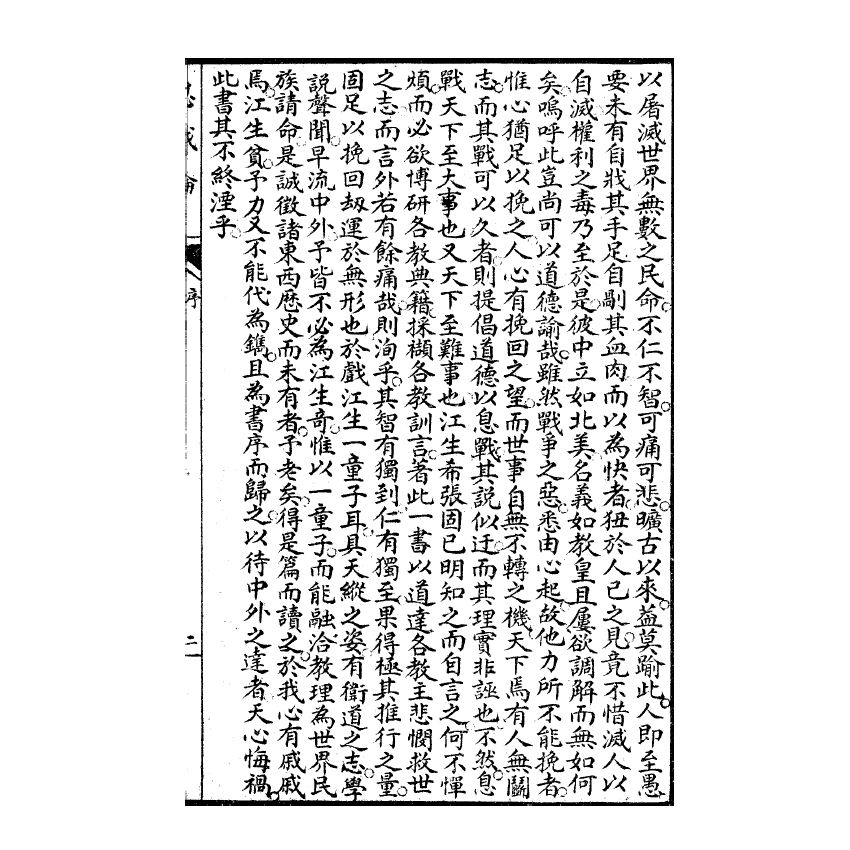 以屠滅世界無數之民命不仁不智可痛可悲曠古以來蓋莫踰此人即至愚
要未有自戕其手足自剮其血肉而以為快者狃於人己之見竟不惜滅人以
自滅權利之毒乃至於是彼中立如北美名義如教皇且屢欲調解而無如何
矣嗚呼此豈尚可以道德諭哉雖然戰爭之惡悉由心起故他力所不能挽者
惟心猶足以挽之人心有挽回之望而世事自無不轉之機天下焉有人無鬭
志而其戰可以久者則提倡道德以息戰其說似迂而其理實非誣也不然息
戰天下至大事也又天下至難事也江生希張固已明知之而自言之何不憚
煩而必欲博研各教典籍採擷各教訓言著此一書以道達各教主悲憫救世
之志而言外若有餘痛哉則洵乎其智有獨到仁有獨至果得極其推行之量
固足以挽回刼運於無形也於戲江生一童子耳具天縱之姿有衛道之志學
說聲聞早流中外予皆不必為江生奇惟以一童子而能融洽教理為世界民
族請命是誠徵諸東西歷史而未有者予老矣得是篇而讀之於我心有戚戚
焉江生貧予力又不能代為鐫且為書序而歸之以待中外之達者天心悔禍
此書其不終湮乎
息戰論
序
二